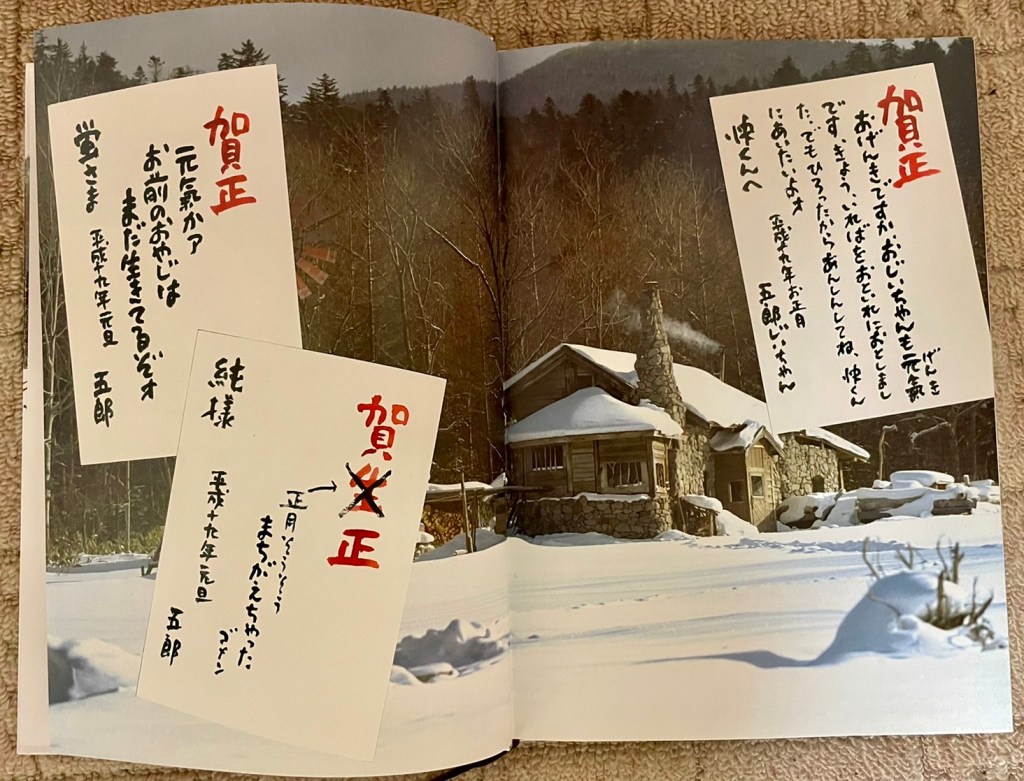 賀正
元氣かァ
お前のおやじは
まだ生きてるぞォ
平成十九年元旦
五郎
蛍さま
賀正
正月そうそう
まちがえちゃった
ゴメン
平成十九年元旦
五郎
純様
賀正
おげんきですか。おじいちゃんも元氣
げんき
です。きょう、いればをおといれにおとしまし
た。でもひろったからあんしんしてね、快くん
にあいたいよォ
平成十九年お正月
五郎じいちゃん
快くんへ